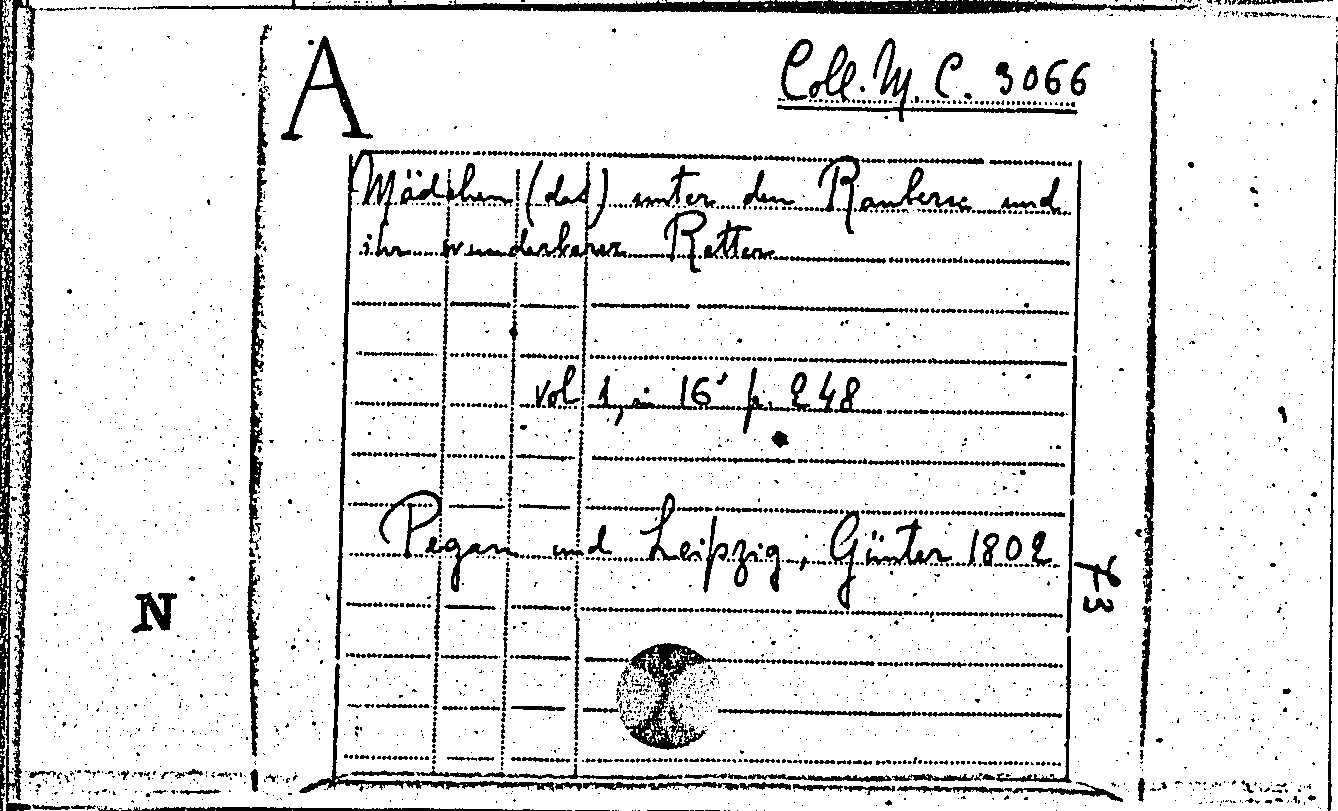 A
Coll. M. C. 3066
Mädchen (das) unter den Raubern und
ihr wunderbarer Retter
vol 1, in 16° p. 248
Pegau und Leipzig, Günter 1802
N